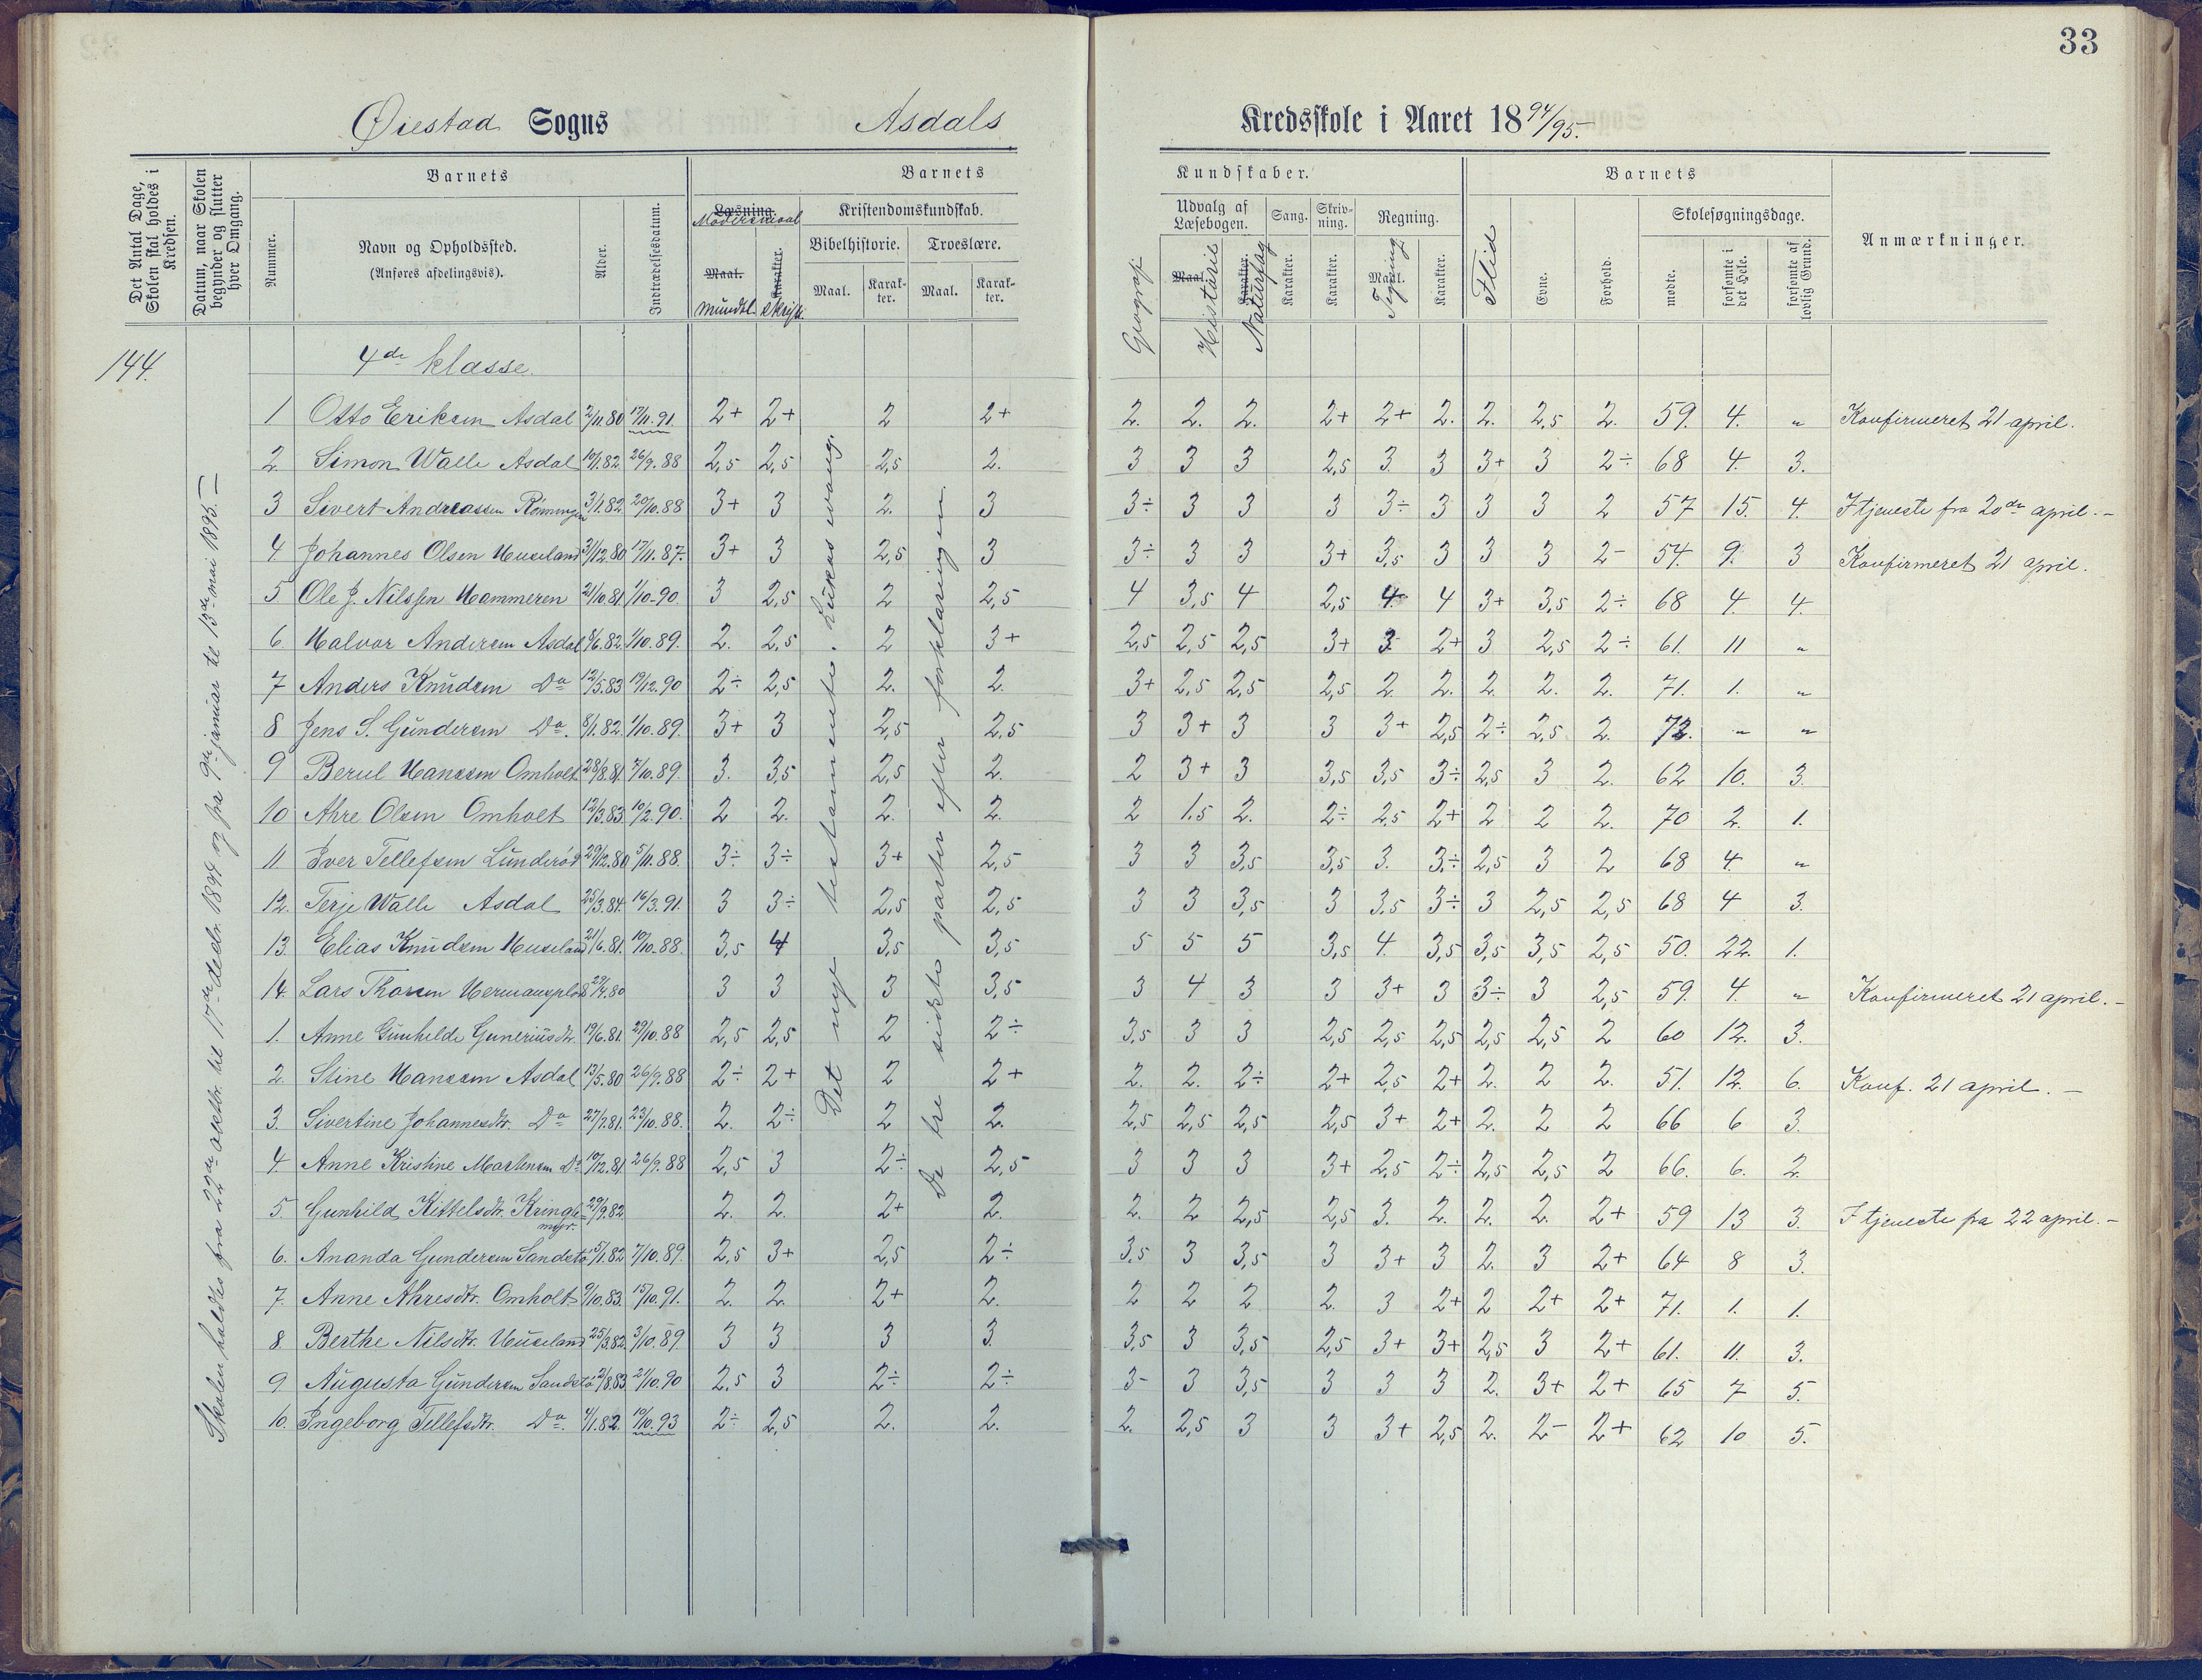 33
Øiestad Sogns Asdals Kredsskole i Aaret 1894/95.
Det Antal Dage, Skolen skal holdes i Kredsen.
Datum, naar Skolen begynder og slutter hver Omgang.
Barnets
Nummer.
Navn og Opholdssted.
(Anføres afdelingsvis).
Alder.
Indtrædelsesdatum.
Barnets Kundskaber.
Læsning.
Modersmaal
Maal. Karakter.
mundtl. skriftl.
Kristendomskundskab.
Bibelhistorie. Troeslære.
Maal. Karakter. Maal. Karakter.
Geografi
Udvalg af Læsebogen.
Maal Karakter.
Historie Naturfag
Sang. Karakter.
Skrivning. Karakter.
Regning.
Maal. Karakter.
Tegning
Barnets
Flid
Evne.
Forhold.
Skolesøgningsdage.
mødte. forsømte i det Hele. forsømte af lovlig Grund.
Anmærkninger.
144. 4de klasse.
Skolen holdes fra 22de oktbr. til 17de decbr. 1894 og fra 9de januar til 13de mai 1895.
Det nye testamente. Lukas evang.
De tre sidste parter efter forklaringen.
1 Otto Eriksen Asdal 2/11.80 17/11.91. 2+ 2+ 2 2+ 2. 2. 2. 2+ 2+ 2. 2. 2,5 2. 59. 4. „ Konfirmeret 21 april.
2. Simon Walle Asdal 10/1.82. 26/9.88 2,5 2,5 2,5 2. 3 3 3 2,5 3. 3 3+ 3 2÷ 68 4. 3.
3 Sivert Andreassen Rønningen 3/1.82. 20/10.88 3+ 3 2. 3 3÷ 3 3 3 3÷ 3 3 3 2 57 15. 4. I tjeneste fra 20de april.-
4 Johannes Olsen Huseland 31/12.80 17/11.87. 3+ 3 2,5 3 3÷ 3 3 3+ 3,5 3 3 3 2- 54. 9. 3 Konfirmeret 21 april.
5 Ole J. Nilssen Hammeren 21/10.81 1/10.90. 3 2,5 2 2,5 4 3,5 4 2,5 4. 4 3+ 3,5 2÷ 68 4. 4.
6. Halvor Andersen Asdal 8/6.82. 1/10.89. 2. 2,5 2 3+ 2,5 2,5 2,5 3+ 3 2+ 3 2,5 2÷ 61. 11 „
7 Anders Knudsen Do 12/5.83 19/12.90 2÷ 2,5 2. 2. 3+ 2,5 2,5 2,5 2. 2. 2. 2. 2. 71. 1. „
8 Jens S. Gundersen Do. 8/1.82. 1/10.89. 3+ 3 2,5 2,5 3 3+ 3 3 3+ 2,5 2÷ 2,5 2. 72. „ „
9 Berul Hanssen Omholt 28/8.81. 7/10.89. 3. 3,5 2,5 2. 2 3+ 3 3,5 3,5 3÷ 2,5 3 2. 62 10. 3.
10 Ahre Olsen Omholt 12/3.83. 10/2.90. 2 2. 2. 2. 2 1,5 2. 2÷ 2,5 2+ 2 2 2. 70 2. 1.
11 Iver Tellefsen Lunderød 29/12.80 5/11.88. 3÷ 3÷ 3+ 2,5 3 3 3,5 3,5 3. 3÷ 2,5 3 2 68 4. „
12. Terje Walle Asdal 25/3.84. 16/3.91. 3 3÷ 2,5 2,5 3 3 3,5 3 3,5 3÷ 3 2,5 2,5 68 4 3.
13. Elias Knudsen Huseland 21/6.81. 10/10.88. 3,5 4 3,5 3,5 5 5 5 3,5 4. 3,5 3,5 3,5 2,5 50. 22. 1.
14. Lars Thorsen Hermansplds 29/4.80 3 3 3 3,5 3 4 3 3 3+ 3 3÷ 3 2,5 59. 4. „ Konfirmeret 21 april.-
1. Anne Gunhilde Guneriusdtr. 19/6.81. 29/10.88 2,5 2,5 2 2÷ 3,5 3 3 2,5 2,5 2,5 2,5 2,5 2 60 12. 3.
2. Stine Hanssen Asdal 13/5.80 26/9.88 2÷ 2+ 2 2+ 2. 2. 2÷ 2+ 2,5 2+ 2. 2 2. 51. 12. 6. Konf. 21 april. -
3. Sivertine Johannesdtr. Do 27/7.81. 23/10.88. 2. 2÷ 2 2. 2,5 2,5 2,5 2,5 3+ 2+ 2. 2 2 66 6 3.
4. Anne Kristine Martensen Do 10/12.81 26/9.88 2,5 3 2÷ 2,5 3 3 3 3+ 2,5 2÷ 2,5 2,5 2 66. 6. 2.
5. Gunhild Kittelsdtr. Kringlemyr. 29/9.82. 2. 2. 2+ 2. 2. 2 2,5 2,5 3. 2. 2. 2. 2+ 59 13 3. I tjeneste fra 22 april.-
6. Ananda Gundersen Sandstø 5/1.82 7/10.89. 2,5 3+ 2,5 2÷ 3,5 3 3,5 3 3+ 3 2. 3 2+ 64 8 3.
7. Anne Ahresdtr. Omholt 9/10.83. 15/10.91. 2. 2. 2+ 2. 2 2 2 2. 3 2+ 2 2+ 2+ 71. 1. 1.
8. Berthe Nilsdtr. Huseland 25/3.82. 3/10.89 3 3 3 3. 3,5 3 3,5 2,5 3+ 3+ 2,5 3 2+ 61. 11. 3.
9 Augusta Gundersen Sandstø 2/8.83. 21/10.90 2,5 3 2÷ 2÷ 3- 3 3,5 3 3 3 2. 3+ 2+ 65 7 5.
10. Ingeborg Tellefsdtr. Do. 4/1.82. 10/10.93 2÷ 2,5 2. 2. 2. 2,5 3 3 3+ 2,5 2. 2- 2+ 62 10 5.